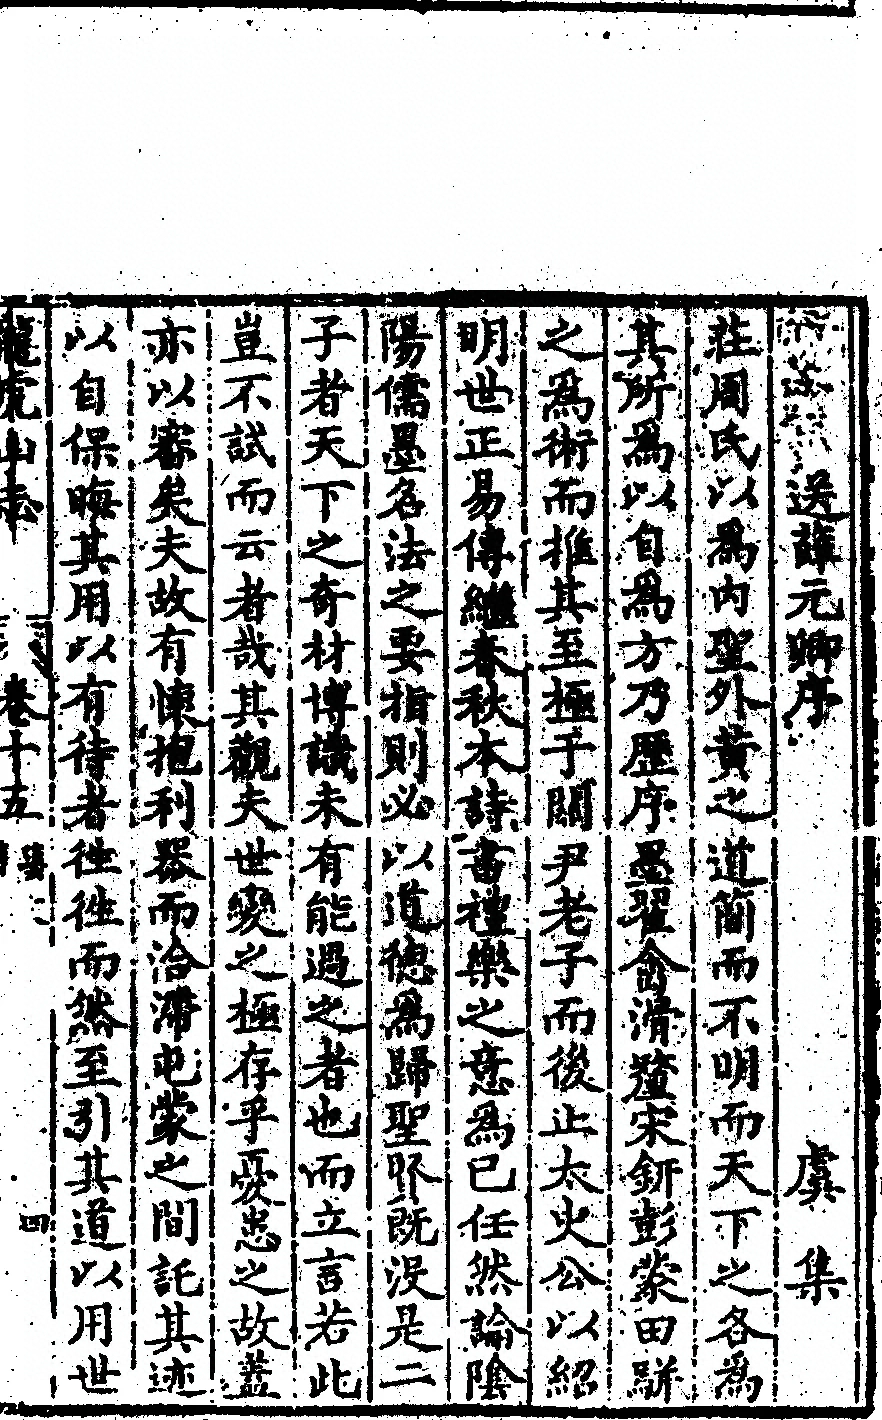 送薛元卿序 虞集
莊周氏以爲內聖外黃之道簡而不明而天下之各爲
其所爲以自爲方乃歷序墨翟禽滑釐宋鈃彭蒙田駢
之爲術而推其至極于關尹老子而後止太史公以紹
明世正易傳繼春秋本詩書禮樂之意爲已任然論陰
陽儒墨名法之要指則必以道德爲歸聖賢既没是二
子者天下之奇材博識未有能過之者也而立言若此
豈不試而云者哉其觀夫世變之極存乎憂患之故蓋
亦以審矣夫故有懷抱利器而洽滯屯蒙之間託其迹
以自保晦其用以有待者徃徃而然至引其道以用世
龍虎山志 卷十五 四